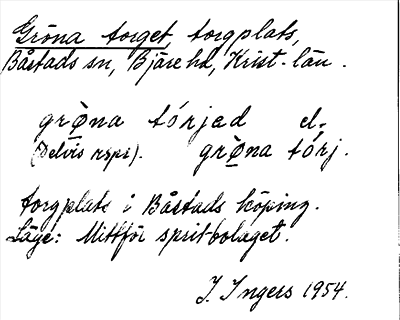 Gröna torget, torgplats,
Båstads sn, Bjäre hd, Krist. län.
grø̀na tórjed el.
(Delvis rspr). grø̀na tórj.
torgplats i Båstads köping.
Läge: Mittför spritbolaget.
I. Ingers 1954.